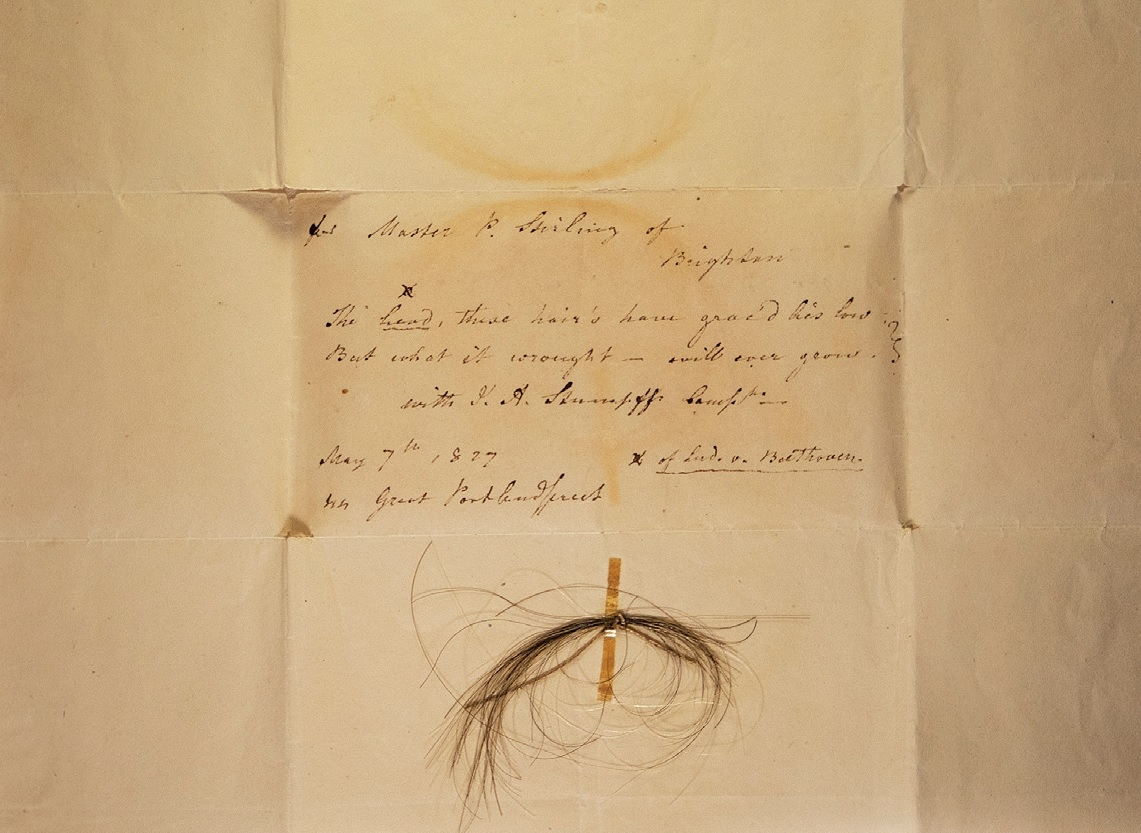 for Master P. Stirling of
Brighton
x
The head, these hair's have grac'd lies low
But what it wrought – will ever grow.
with J. A. Stumpff
May 7th, 1827 x of Lud. v. Beethoven.
Great Portlandstreet